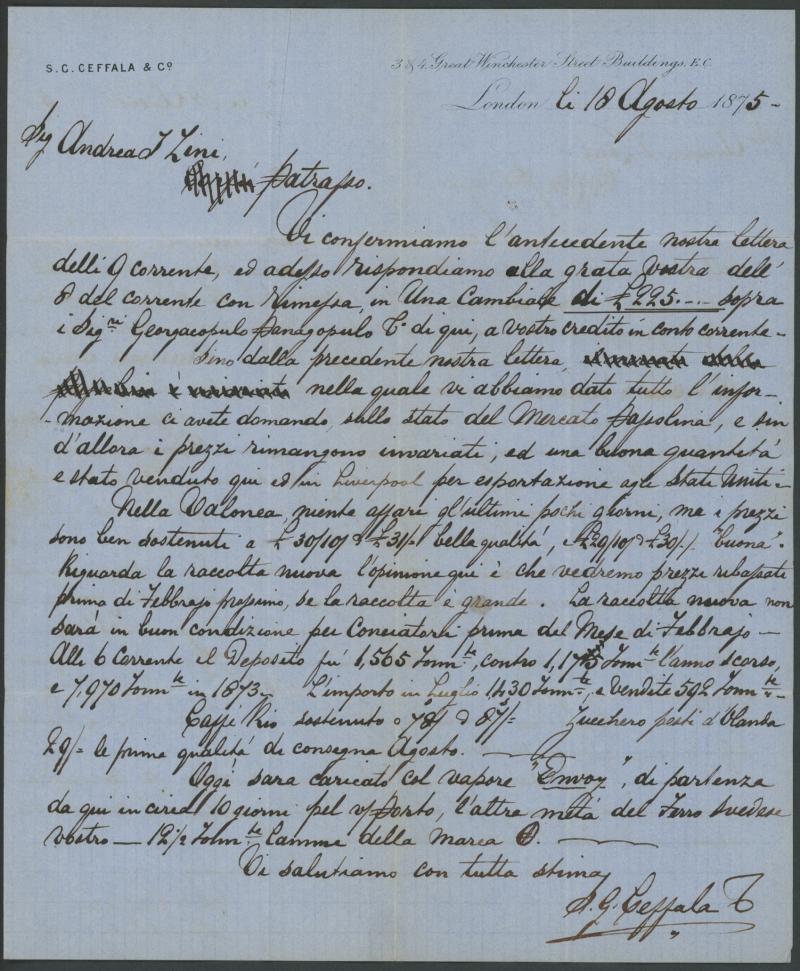 S. G. CEFFALA & Cº
3 & 4 Great Winchester Street Buildings, E.C.
London li 18 Agosto 1875 -
Sig Andrea J Zini,
Patrasso.
Vi confermiamo l'antecedente nostra lettera
delli 9 corrente, ed adesso rispondiamo alla grata vostra dell'
8 del corrente con rimessa, in Una Cambiale di £225.-.- sopra
i Sigri Georgacopulo Panagopulo Cº di qui, a vostro credito in conto corrente -
Sino dalla precedente nostra lettera,
nella quale vi abbiamo dato tutto l'infor-
-mazione ci avete domando, sullo stato del Mercato Passolina, e sin
d'allora i prezzi rimangono invariati, ed una buona quantitá
e stato venduto qui ed in Liverpool per esportazione agli Stati Uniti -
Nella Valonea niente affari gl'ultimi pochi giorni, ma i prezzi
sono ben sostenuti a £30/10/ @ £31/- bella qualitá, e £29/10/ @ £30/-/. "buona".
Riguarda la raccolta nuova l'opinione qui è che vedremo prezzi ribassati
prima di Febbrajo prossimo, se la raccolta è grande. La raccolta nuova non
sará in buon condizione per Conciatori prima del Mese di Febbrajo -
Alli 6 Corrente il Deposito fú 1,565 Tonnte, contro 1,175 Tonnte l'anno scorso,
e 7,970 Tonnte in 1873 - L'importo in Luglio 1,430 Tonnte, e vendite 592 Tonnte -
Caffé Rio sostenuto a 78/ @ 87/- Zucchero pesti d'Olanda
29/- le prima qualitá di consegna Agosto.
Oggi sara caricato col vapore "Envoy", di partenza
da qui in circa 10 giorni pel v/porto, l'altra metá del Ferro Svedese
vostro — 12½ Tonnte Lamme della marca
Vi salutiamo con tutta stima
S. G. Ceffala Cº